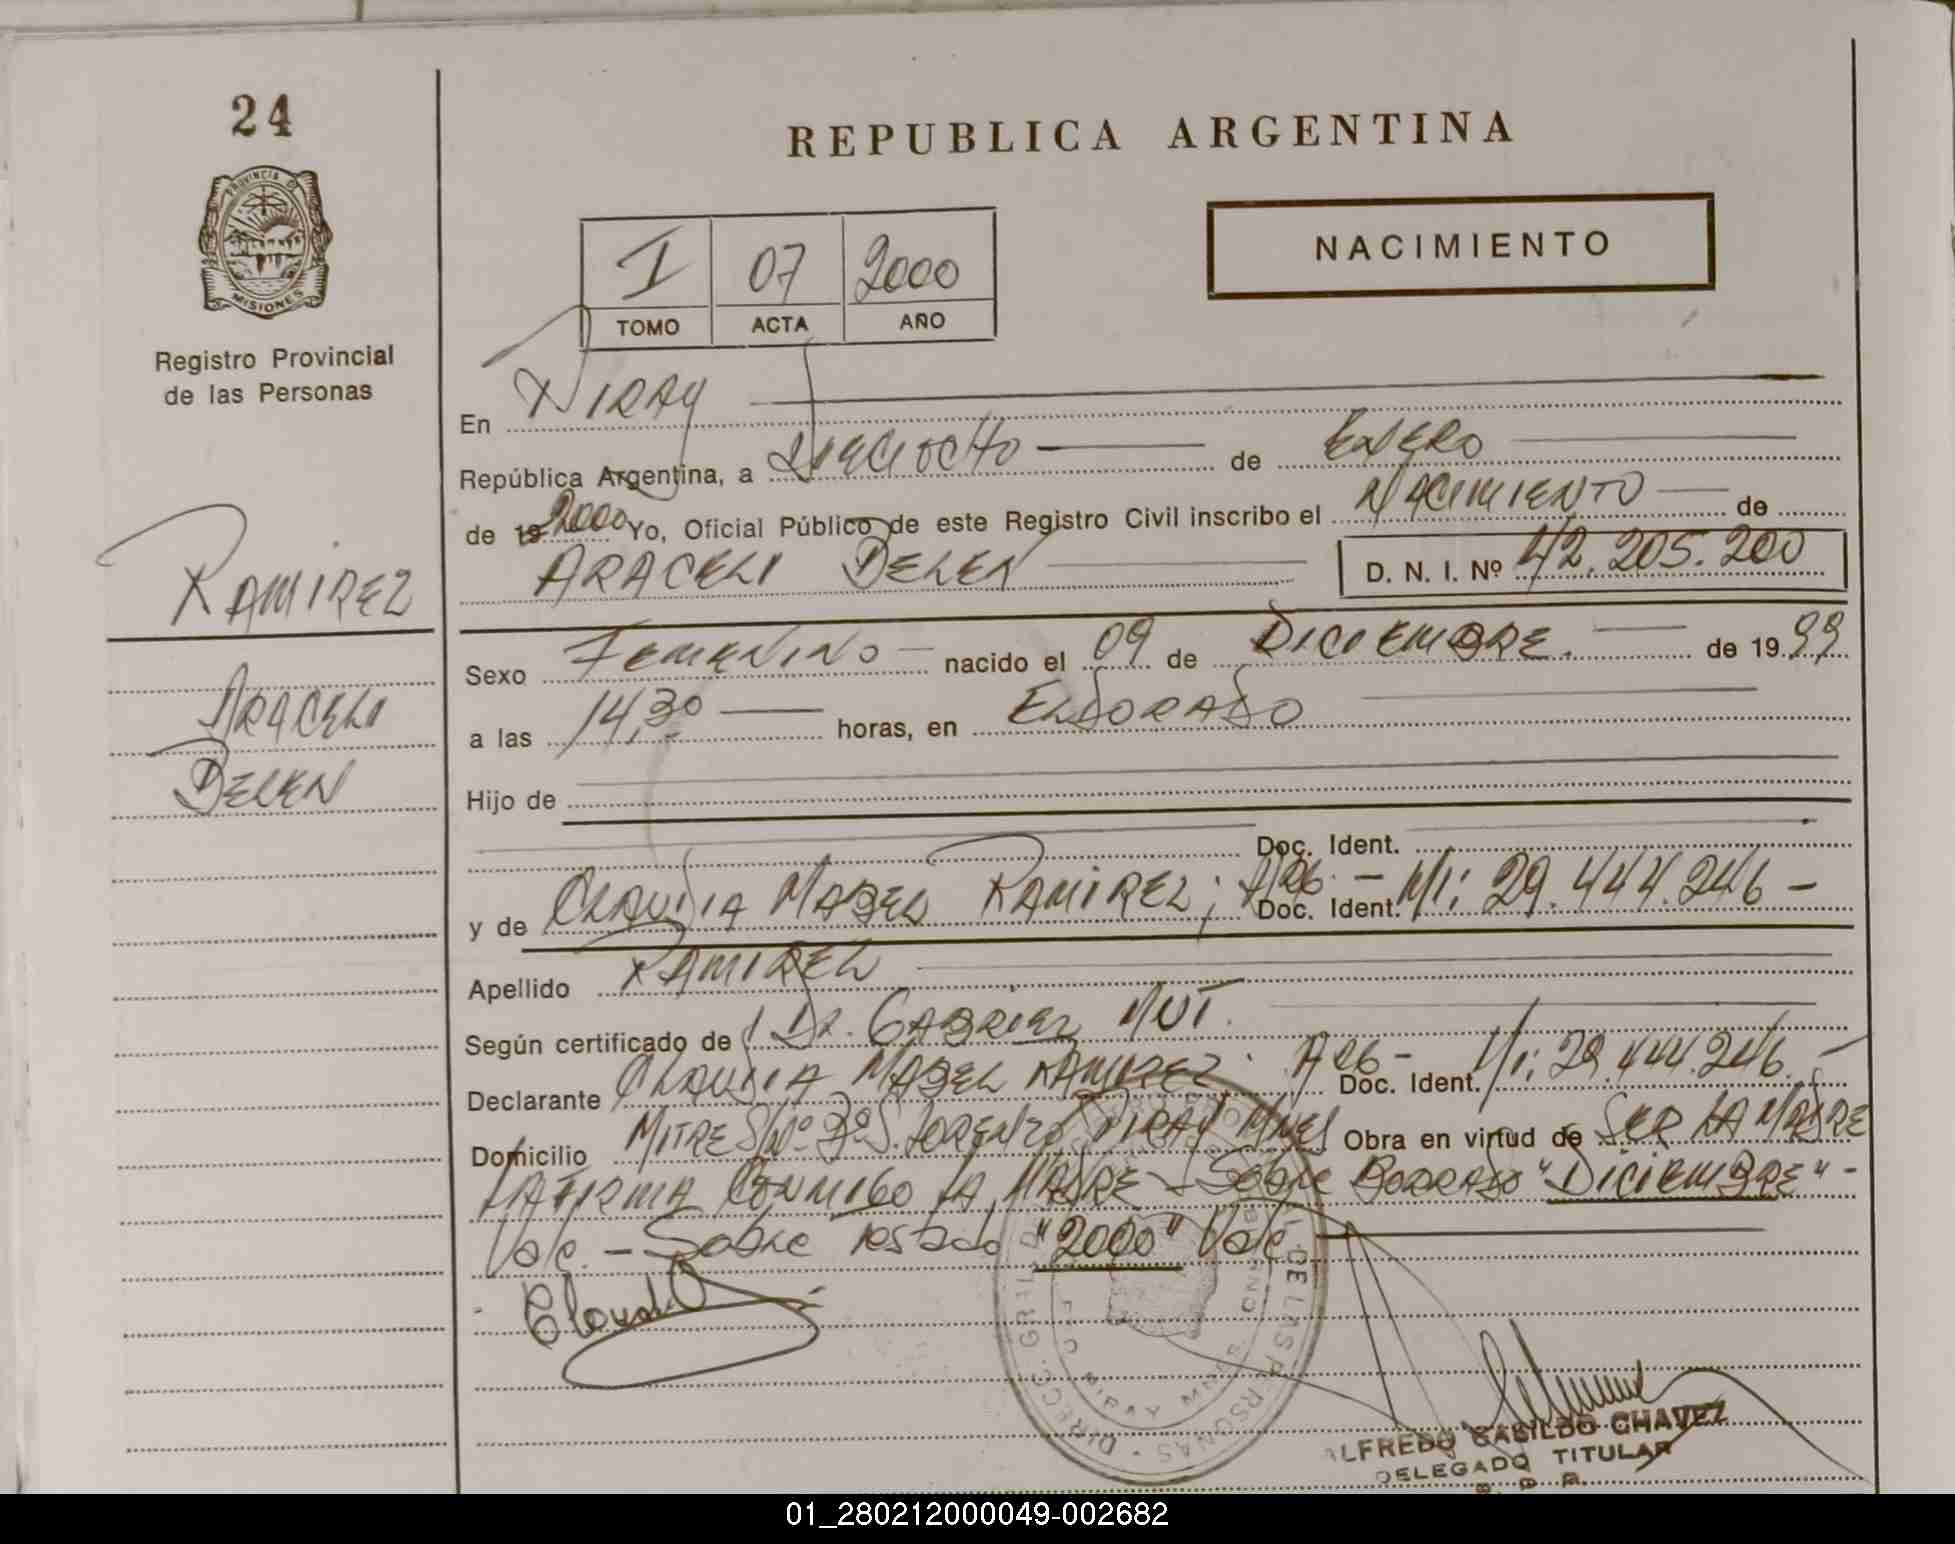 24
PROVINCIA DE
MISIONES
Registro Provincial
de las Personas
RAMIREZ
ARACELI
BELEN
REPUBLICA ARGENTINA
NACIMIENTO
I 07 2000
TOMO ACTA AÑO
En PIRAY
República Argentina, a DIECIOCHO de ENERO
de 19 2000 Yo, Oficial Público de este Registro Civil inscribo el NACIMIENTO de
ARACELI BELEN D. N. I. Nº 42.205.200
Sexo FEMENINO nacido el 09 de DICIEMBRE. de 1999
a las 14,30 horas, en ELDORADO
Hijo de
Doc. Ident.
y de CLAUDIA MABEL RAMIREZ; ARG. - Doc. Ident. MI: 29.444.246 -
Apellido RAMIREZ
Según certificado de DR. GABRIEL MUT.
Declarante CLAUDIA MABEL RAMIREZ. ARG - Doc. Ident. MI: 29.444.246. -
Domicilio MITRE S/Nº Bº S. LORENZO, PIRAY MNES Obra en virtud de SER LA MADRE
FIRMA CONMIGO LA MADRE - Sobre BORRADO "DICIEMBRE" -
Vale. - Sobre testado "2000" Vale
Claudia
DIRECC. GRAL. DE LAS PERSONAS
PIRAY MNES
ALFREDO CASILDO CHAVEZ
DELEGADO TITULAR
01_280212000049-002682